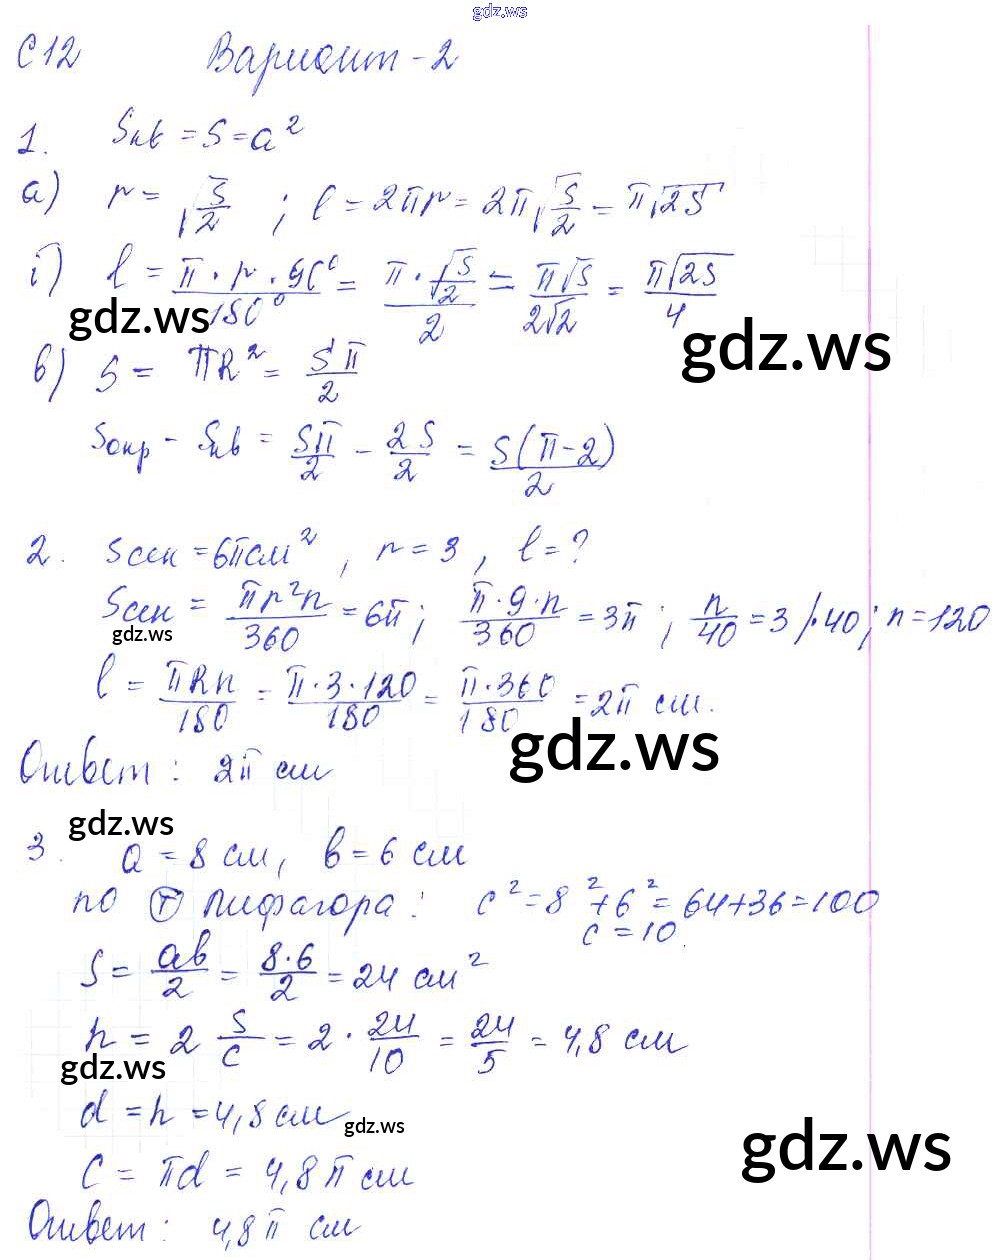 gdz.ws
С 12 Вариант - 2
1. Sкв = S = a²
а) r = √(S/2) ; l = 2πr = 2π√(S/2) = π√2S
б) l = π · r · 90° / 180° = π · √(S/2) / 2 = π√S / 2√2 = π√2S / 4
gdz.ws
gdz.ws
в) S = πR² = Sπ / 2
Sокр - Sкв = Sπ/2 - 2S/2 = S(π-2)/2
2. Sсек = 6π см², r = 3, l = ?
Sсек = πr²n / 360 = 6π; π·9·n / 360 = 3π; n/40 = 3 /·40; n = 120
gdz.ws
l = πRn / 180 = π·3·120 / 180 = π·360 / 180 = 2π см.
gdz.ws
Ответ: 2π см
gdz.ws
3. a = 8 см, b = 6 см
по Т Пифагора: c² = 8² + 6² = 64 + 36 = 100
c = 10
S = ab/2 = 8·6/2 = 24 см²
h = 2 S/c = 2 · 24/10 = 24/5 = 4,8 см
gdz.ws
d = h = 4,8 см
gdz.ws
gdz.ws
C = πd = 4,8π см
Ответ: 4,8π см